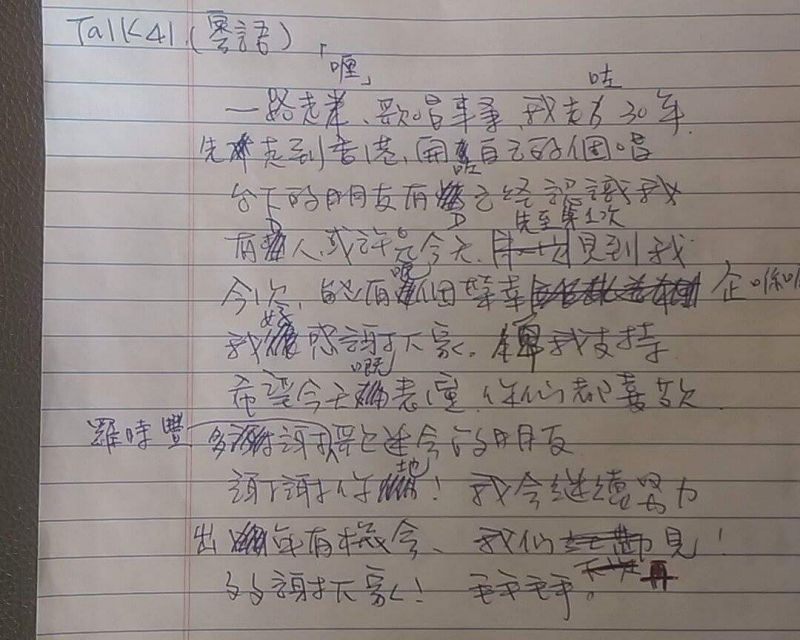 Talk41.(粵語)
「喱」 咗
一路走來、歌唱事事,我走咗30年
先來到香港,開自己的個唱
台下的朋友有D已經認識我
有D人,或許是今天,先至第1次見到我
今次,能有呢個榮幸 企喺
我好感謝大家,俾我支持
希望今天嘅表演,你們都喜歡
羅時豐 多謝歌迷會的朋友
謝謝你地!我會繼續努力
出年有機會、我們再見!
多謝大家!